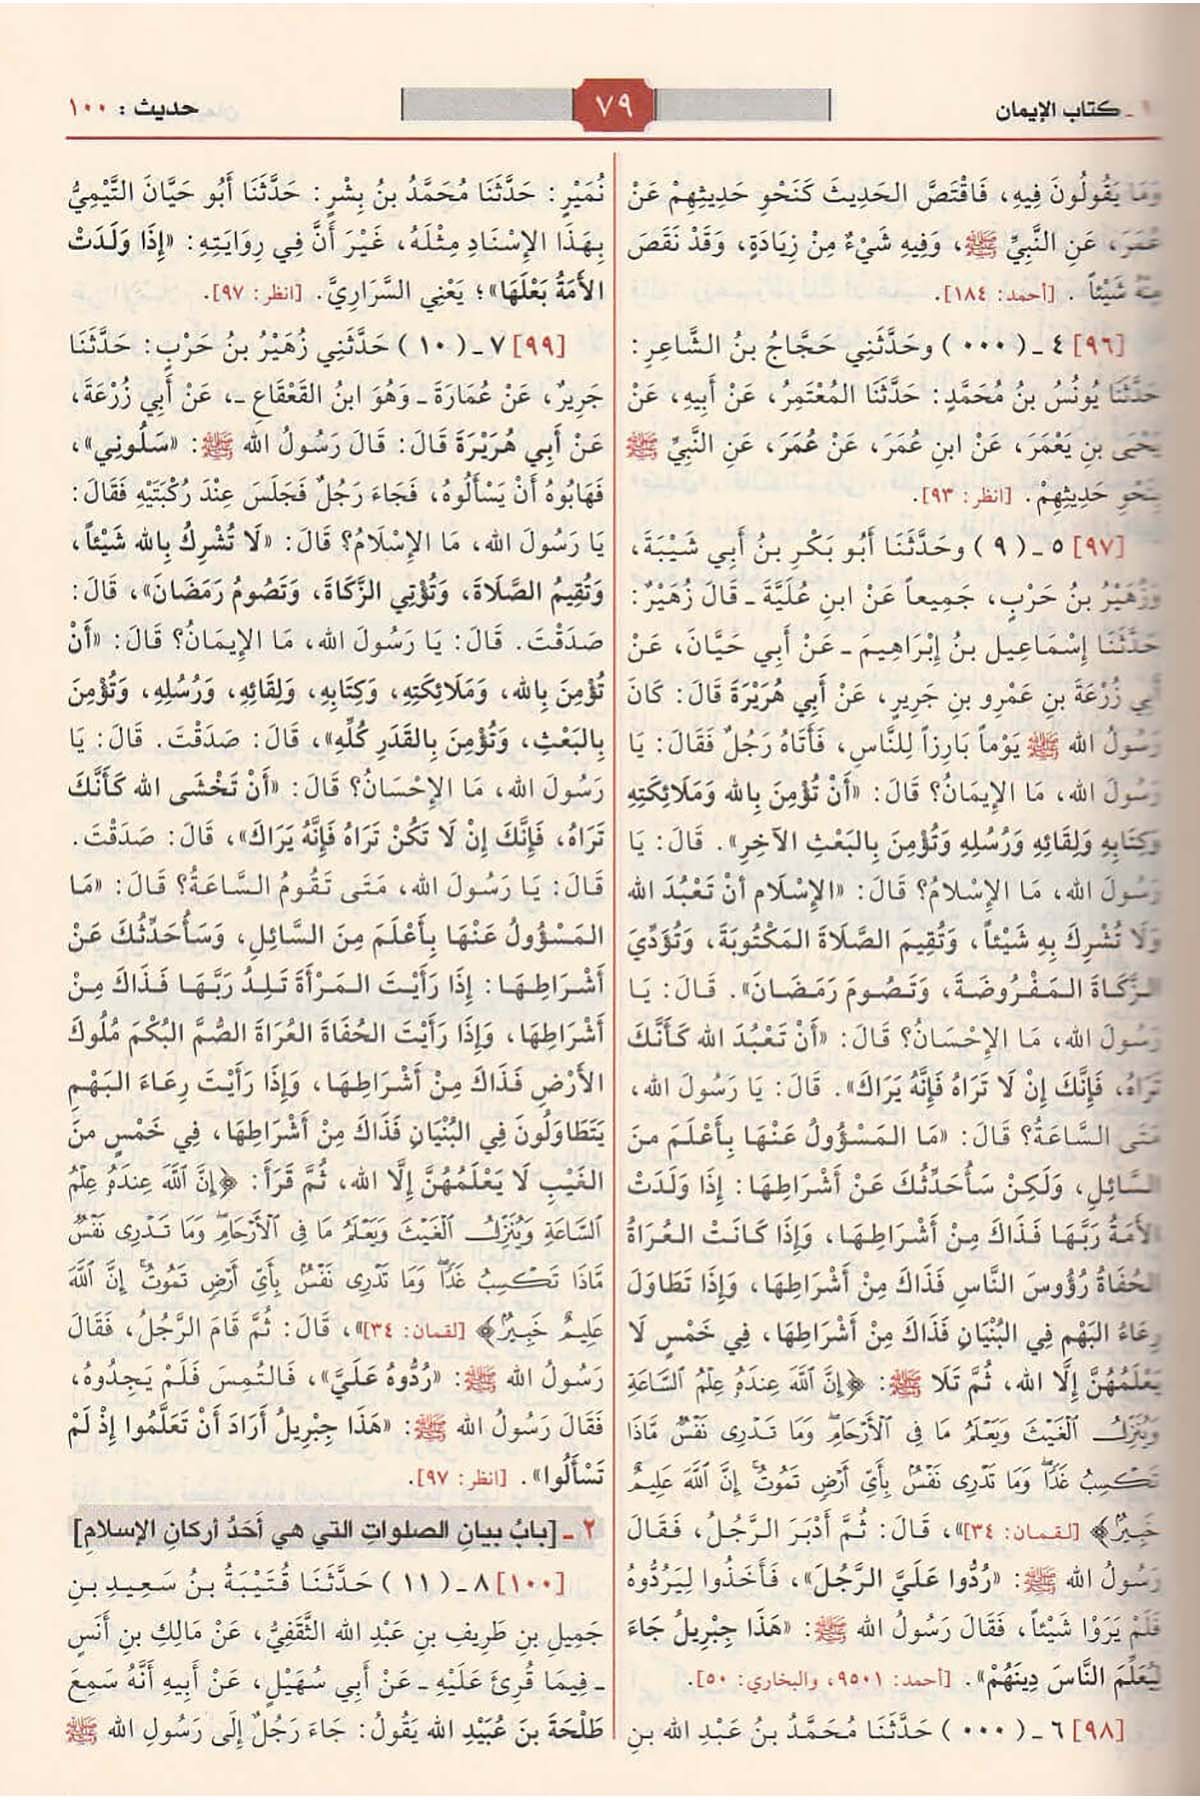 ١ ـ كتاب الإيمان
٧٩
حديث : ١٠٠
وَمَا يَقُولُونَ فِيهِ، فَاقْتَصَّ الحَدِيثَ كَنَحْوِ حَدِيثِهِمْ عَنْ
عُمَرَ، عَنِ النَّبِيِّ ﷺ، وَفِيهِ شَيْءٌ مِنْ زِيَادَةٍ، وَقَدْ نَقَصَ
مِنْهُ شَيْئاً . [أحمد: ١٨٤].
[٩٦] ٤ ـ ( ٠٠٠ ) وحَدَّثَنِي حَجَّاجُ بنُ الشَّاعِرِ:
حَدَّثَنَا يُونُسُ بنُ مُحَمَّدٍ: حَدَّثَنَا المُعْتَمِرُ، عَنْ أَبِيهِ، عَنْ
يَحْيَى بنِ يَعْمَرَ، عَنْ ابنِ عُمَرَ، عَنْ عُمَرَ، عَنِ النَّبِيِّ ﷺ
بِنَحْوِ حَدِيثِهِمْ. [انظر: ٩٣].
[٩٧] ٥ ـ ( ٩ ) وحَدَّثَنَا أَبُو بَكْرِ بنُ أَبِي شَيْبَةَ،
وَزُهَيْرُ بنُ حَرْبٍ، جَمِيعاً عَنْ ابنِ عُلَيَّةَ ـ قَالَ زُهَيْرٌ:
حَدَّثَنَا إِسْمَاعِيل بنُ إِبْرَاهِيمَ ـ عَنْ أَبِي حَيَّانَ، عَنْ
أَبِي زُرْعَةَ بنِ عَمْرِو بنِ جَرِيرٍ، عَنْ أَبِي هُرَيْرَةَ قَالَ: كَانَ
رَسُولُ الله ﷺ يَوْماً بَارِزاً لِلنَّاسِ، فَأَتَاهُ رَجُلٌ فَقَالَ: يَا
رَسُولَ الله، مَا الإِيمَانُ؟ قَالَ: «أَنْ تُؤْمِنَ بِالله وَمَلَائِكَتِهِ
وَكِتَابِهِ وَلِقَائِهِ وَرُسُلِهِ وَتُؤْمِنَ بِالبَعْثِ الآخِرِ». قَالَ: يَا
رَسُولَ الله، مَا الإِسْلامُ؟ قَالَ: «الإِسْلَام أنْ تَعْبُدَ الله
وَلَا تُشْرِكَ بِهِ شَيْئاً، وَتُقِيمَ الصَّلَاةَ المَكْتُوبَةَ، وَتُؤَدِّيَ
الزَّكَاةَ المَفْرُوضَةَ، وَتَصُومَ رَمَضَانَ». قَالَ: يَا
رَسُولَ الله، مَا الإِحْسَانُ؟ قَالَ: «أَنْ تَعْبُدَ الله كَأَنَّكَ
تَرَاهُ، فَإِنَّكَ إِنْ لَا تَرَاهُ فَإِنَّهُ يَرَاكَ». قَالَ: يَا رَسُولَ الله،
مَتَى السَّاعَةُ؟ قَالَ: «مَا المَسْؤُولُ عَنْهَا بِأَعْلَمَ منَ
السَّائِلِ، وَلَكِنْ سَأُحَدِّثُكَ عَنْ أَشْرَاطِهَا: إِذَا وَلَدَتْ
الأَمَةُ رَبَّهَا فَذَاكَ مِنْ أَشْرَاطِهَا، وَإِذَا كَانَتْ العُرَاةُ
الحُفَاةُ رُؤُوسَ النَّاسِ فَذَاكَ مِنْ أَشْرَاطِهَا، وَإِذَا تَطَاوَلَ
رِعَاءُ البَهْمِ فِي البُنْيَانِ فَذَاكَ مِنْ أَشْرَاطِهَا، فِي خَمْسٍ لَا
يَعْلَمُهُنَّ إِلَّا الله، ثُمَّ تَلَا ﷺ: ﴿إِنَّ ٱللَّهَ عِندَهُۥ عِلْمُ ٱلسَّاعَةِ
وَيُنَزِّلُ ٱلْغَيْثَ وَيَعْلَمُ مَا فِى ٱلْأَرْحَامِ وَمَا تَدْرِى نَفْسٌ مَّاذَا
تَكْسِبُ غَدًا وَمَا تَدْرِى نَفْسٌ بِأَىِّ أَرْضٍ تَمُوتُ إِنَّ ٱللَّهَ عَلِيمٌ
خَبِيرٌ﴾ [لقمان: ٣٤]»، قَالَ: ثُمَّ أَدْبَرَ الرَّجُلُ، فَقَالَ
رَسُولُ الله ﷺ: «رُدُّوا عَلَيَّ الرَّجُلَ»، فَأَخَذُوا لِيَرُدُّوهُ
فَلَمْ يَرَوْا شَيْئاً، فَقَالَ رَسُولُ الله ﷺ: «هَذَا جِبْرِيلُ جَاءَ
لِيُعَلِّمَ النَّاسَ دِينَهُمْ». [أحمد: ٩٥٠١، والبخاري: ٥٠].
[٩٨] ٦ ـ ( ٠٠٠ ) حَدَّثَنَا مُحَمَّدُ بنُ عَبْدِ الله بنِ
نُمَيْرٍ: حَدَّثَنَا مُحَمَّدُ بنُ بِشْرٍ: حَدَّثَنَا أَبُو حَيَّانَ التَّيْمِيُّ
بِهَذَا الإِسْنَادِ مِثْلَهُ، غَيْرَ أَنَّ فِي رِوَايَتِهِ: «إِذَا وَلَدَتْ
الأَمَةُ بَعْلَهَا»؛ يَعْنِي السَّرَارِيَّ. [انظر: ٩٧].
[٩٩] ٧ ـ ( ١٠ ) حَدَّثَنِي زُهَيْرُ بنُ حَرْبٍ: حَدَّثَنَا
جَرِيرٌ، عَنْ عُمَارَةَ ـ وَهُوَ ابنُ القَعْقَاعِ ـ، عَنْ أَبِي زُرْعَةَ،
عَنْ أَبِي هُرَيْرَةَ قَالَ: قَالَ رَسُولُ الله ﷺ: «سَلُونِي»،
فَهَابُوهُ أَنْ يَسْأَلُوهُ، فَجَاءَ رَجُلٌ فَجَلَسَ عِنْدَ رُكْبَتَيْهِ فَقَالَ:
يَا رَسُولَ الله، مَا الإِسْلَامُ؟ قَالَ: «لَا تُشْرِكُ بِالله شَيْئاً،
وَتُقِيمُ الصَّلَاةَ، وَتُؤْتِي الزَّكَاةَ، وَتَصُومُ رَمَضَانَ»، قَالَ:
صَدَقْتَ. قَالَ: يَا رَسُولَ الله، مَا الإِيمَانُ؟ قَالَ: «أَنْ
تُؤْمِنَ بِالله، وَمَلَائِكَتِهِ، وَكِتَابِهِ، وَلِقَائِهِ، وَرُسُلِهِ، وَتُؤْمِنَ
بِالبَعْثِ، وَتُؤْمِنَ بِالقَدَرِ كُلِّهِ»، قَالَ: صَدَقْتَ. قَالَ: يَا
رَسُولَ الله، مَا الإِحْسَانُ؟ قَالَ: «أَنْ تَخْشَى الله كَأَنَّكَ
تَرَاهُ، فَإِنَّكَ إِنْ لَا تَكُنْ تَرَاهُ فَإِنَّهُ يَرَاكَ»، قَالَ: صَدَقْتَ.
قَالَ: يَا رَسُولَ الله، مَتَى تَقُومُ السَّاعَةُ؟ قَالَ: «مَا
المَسْؤُولُ عَنْهَا بِأَعْلَمَ مِنَ السَّائِلِ، وَسَأُحَدِّثُكَ عَنْ
أَشْرَاطِهَا: إِذَا رَأَيْتَ المَرْأَةَ تَلِدُ رَبَّهَا فَذَاكَ مِنْ
أَشْرَاطِهَا، وَإِذَا رَأَيْتَ الحُفَاةَ العُرَاةَ الصُّمَّ البُكْمَ مُلُوكَ
الأَرْضِ فَذَاكَ مِنْ أَشْرَاطِهَا، وَإِذَا رَأَيْتَ رِعَاءَ البَهْمِ
يَتَطَاوَلُونَ فِي البُنْيَانِ فَذَاكَ مِنْ أَشْرَاطِهَا، فِي خَمْسٍ منَ
الغَيْبِ لَا يَعْلَمُهُنَّ إِلَّا الله، ثُمَّ قَرَأَ: ﴿إِنَّ ٱللَّهَ عِندَهُۥ عِلْمُ
ٱلسَّاعَةِ وَيُنَزِّلُ ٱلْغَيْثَ وَيَعْلَمُ مَا فِى ٱلْأَرْحَامِ وَمَا تَدْرِى نَفْسٌ
مَّاذَا تَكْسِبُ غَدًا وَمَا تَدْرِى نَفْسٌ بِأَىِّ أَرْضٍ تَمُوتُ إِنَّ ٱللَّهَ
عَلِيمٌ خَبِيرٌ﴾ [لقمان: ٣٤]»، قَالَ: ثُمَّ قَامَ الرَّجُلُ، فَقَالَ
رَسُولُ الله ﷺ: «رُدُّوهُ عَلَيَّ»، فَالتُمِسَ فَلَمْ يَجِدُوهُ،
فَقَالَ رَسُولُ الله ﷺ: «هَذَا جِبْرِيلُ أَرَادَ أَنْ تَعَلَّمُوا إِذْ لَمْ
تَسْأَلُوا». [انظر: ٩٧].
٢ ـ [بابُ بيانِ الصلواتِ التي هي أَحَدُ أركانِ الإسلامِ]
[١٠٠] ٨ ـ ( ١١ ) حَدَّثَنَا قُتَيْبَةُ بنُ سَعِيدِ بنِ
جَمِيلِ بنِ طَرِيفِ بنِ عَبْدِ الله الثَّقَفِيُّ، عَنْ مَالِكِ بنِ أَنَسٍ
ـ فِيمَا قُرِئَ عَلَيْهِ ـ عَنْ أَبِي سُهَيْلٍ، عَنْ أَبِيهِ أَنَّهُ سَمِعَ
طَلْحَةَ بنَ عُبَيْدِ الله يَقُولُ: جَاءَ رَجُلٌ إِلَى رَسُولِ الله ﷺ